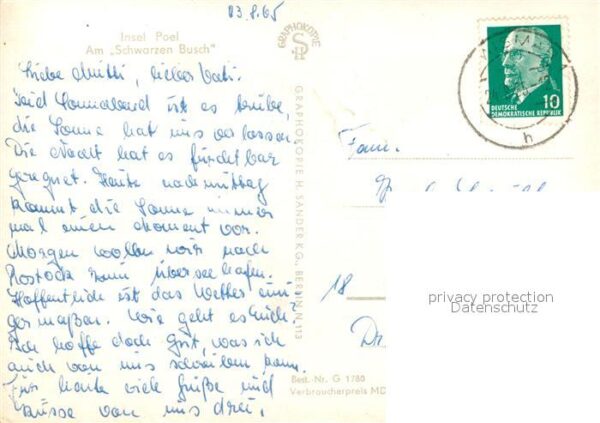 03.8.65
Insel Poel
Am „Schwarzen Busch"
Liebe Mutti, lieber Vati.
Seid Sonnabend ist es trübe,
die Sonne hat uns verlassen.
Die Nacht hat es furchtbar
geregnet. Heute nachmittag
kommt die Sonne immer
mal einen Moment vor.
Morgen wollen wir nach
Rostock zum Überseehafen.
Hoffentlich ist das Wetter eini-
germaßen. Wie geht es Euch?
Ich hoffe doch gut, was ich
auch von uns schreiben kann.
Für heute viele Grüße und
Küsse von uns drei,
GRAPHOKOPIE
GRAPHOKOPIE H. SANDER KG., BERLIN N 113
Best.-Nr. G 1780
Verbraucherpreis MD
DEUTSCHE
DEMOKRATISCHE REPUBLIK
10
h
Fam.
18
Dr
privacy protection
Datenschutz